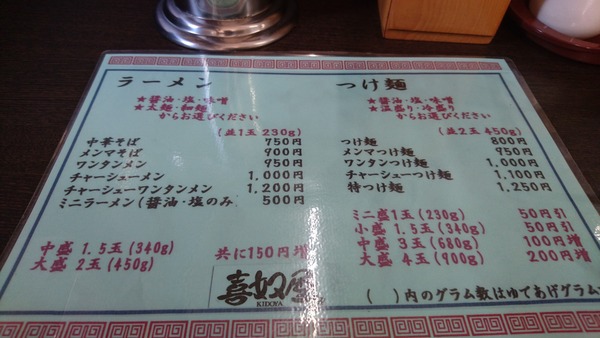 ラーメン
★醤油・塩・味噌
★太麺・細麺
からお選びください
(並1玉 230g)
中華そば 750円
メンマそば 900円
ワンタンメン 950円
チャーシューメン 1,000円
チャーシューワンタンメン 1,200円
ミニラーメン(醤油・塩のみ 500円
中盛 1.5玉(340g)
大盛 2玉(450g)
共に150円増
つけ麺
★醤油・塩・味噌
★温盛り・冷盛り
からお選びください
(並2玉 450g)
つけ麺 800円
メンマつけ麺 950円
ワンタンつけ麺 1,000円
チャーシューつけ麺 1,100円
特つけ麺 1,250円
ミニ盛1玉(230g) 50円引
小盛 1.5玉(340g) 50円引
中盛 3玉(680g) 100円増
大盛 4玉(900g) 200円増
喜奴屋
KIDOYA
( )内のグラム数はゆであげグラム